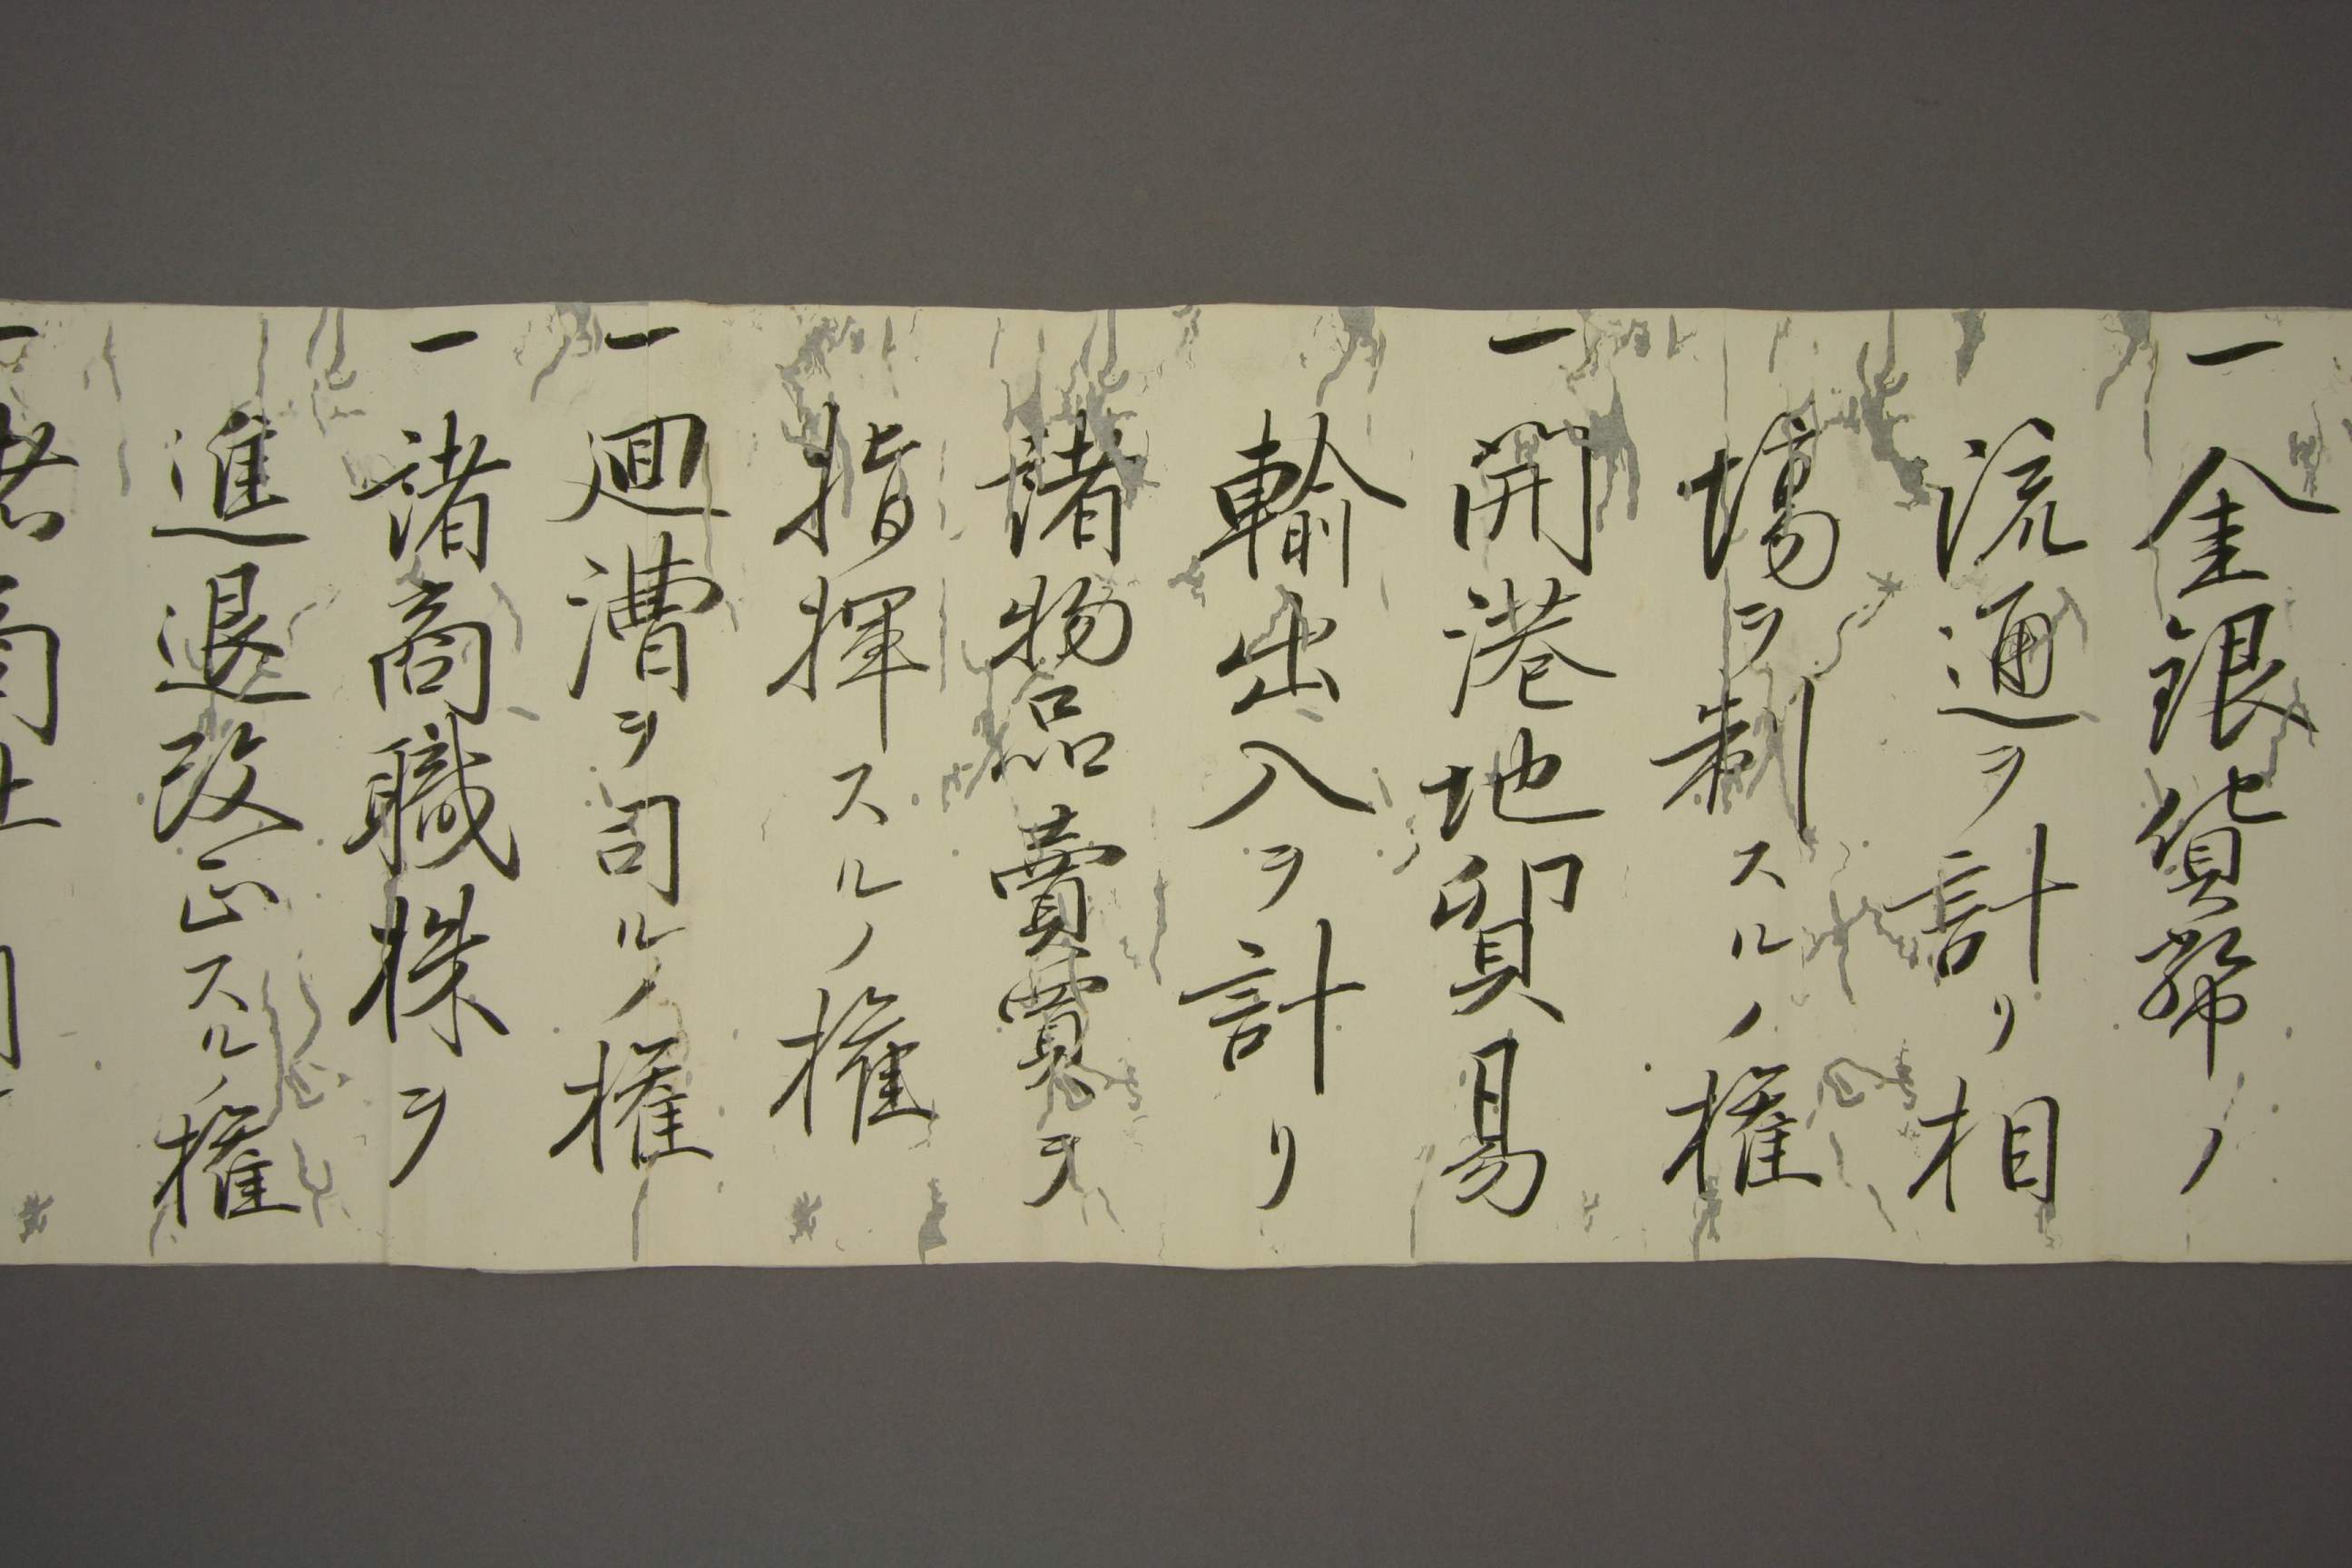 一金銀貨幣ノ
流通ヲ計リ相
場ヲ制スルノ権
一開港地貿易
輸出入ヲ計リ
諸物品賣買ヲ
指揮スルノ権
一廻漕ヲ司ルノ権
一諸商職株ヲ
進退改正スルノ権
一諸商社